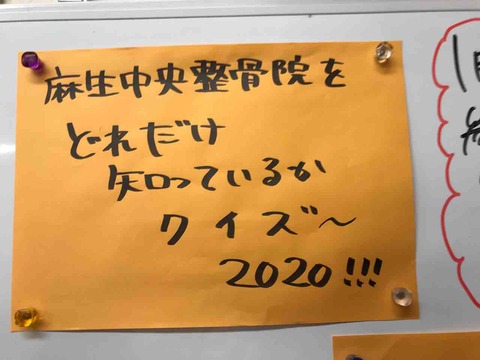 麻生中央整骨院を
どれだけ
知っているか
クイズ〜
2020!!!